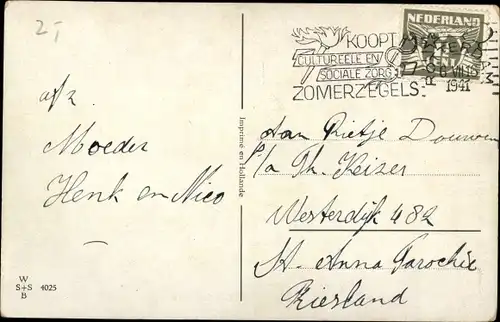 2,-
afz.
Moeder
Henk en Nico
W
S+S 4025
B
Imprimé en Hollande
KOOPT
CULTUREELE EN
SOCIALE ZORG
ZOMERZEGELS-
NEDERLAND
CENT
AMSTERDAM
VII
1941
Aan Rietje Douwen
c/a Th. Keizer
Westerdijk 482
St. Anna Parochie
Friesland